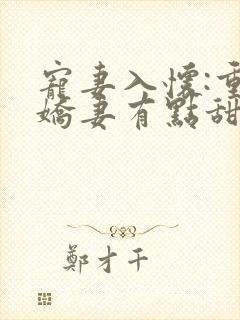 寵妻入懷:重
嬌妻有點甜
鄭才千